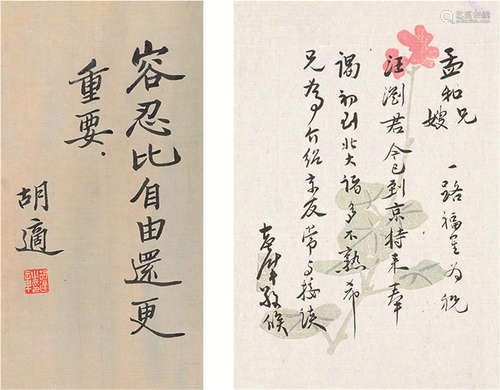 容忍比自由還更
重要．
胡適
孟和兄
嫂 一路福星為祝
汪瀏君今已到京特来奉
謁初到北大諸多不熟希
兄為介绍京友常与接谈